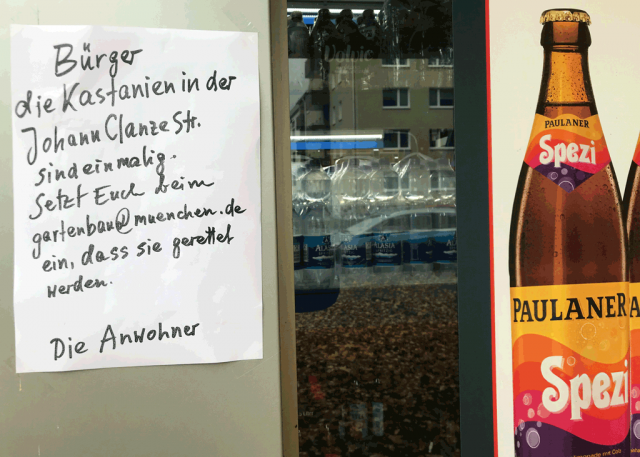 Bürger
die Kastanien in der
Johann Clanze Str.
sind einmalig.
Setzt Euch beim
gartenbau@muenchen.de
ein, dass sie gerettet
werden.
Die Anwohner
PAULANER
Spezi
PAULANER
Spezi